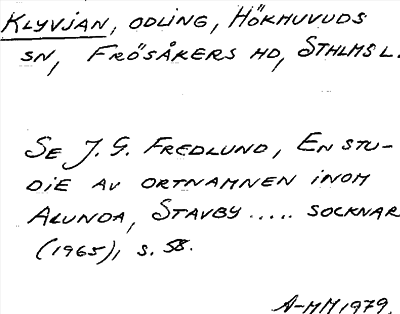 KLYVJAN, ODLING, HÖKHUVUDS
SN, FRÖSÅKERS HD, STHLMS L.
SE J. G. FREDLUND, EN STU-
DIE AV ORTNAMNEN INOM
ALUNDA, STAVBY ..... SOCKNAR
(1965), S. 58.
A-MM 1979.